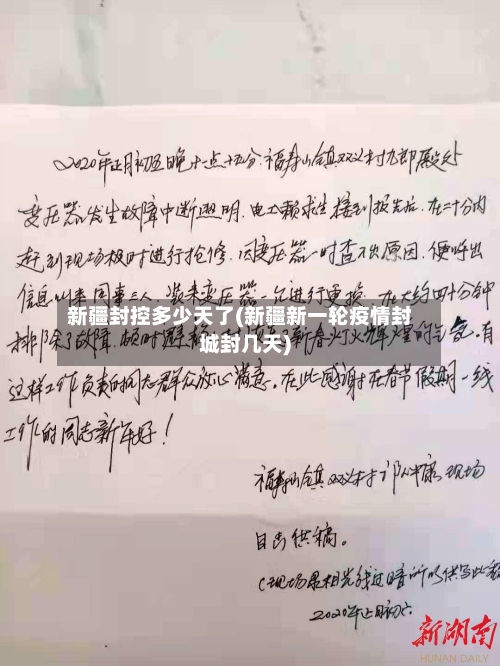 2020年正月初五晚十一点十五分.福寿山镇双义村九郎殿处
变压器发生故障中断照明.电工赖求生接到报告后.在二十分内
赶到现场及时进行抢修.因变压器一时查不出原因.便呼出
信息叫来同事三人.装来变压器一台进行更换.在大约四十分钟
新疆封控多少天了(新疆新一轮疫情封
城封几天)
排除了故障.顿时 新春灯火辉煌的 .有
这样工作负责的同志群众放心满意.在此感谢在春节假期一线
工作的同志新年好!
福寿山镇双义村 现场
目击供稿。
(现场景相光线过暗所以供写此稿
2020年正月初六
新湖南
HUNAN DAILY